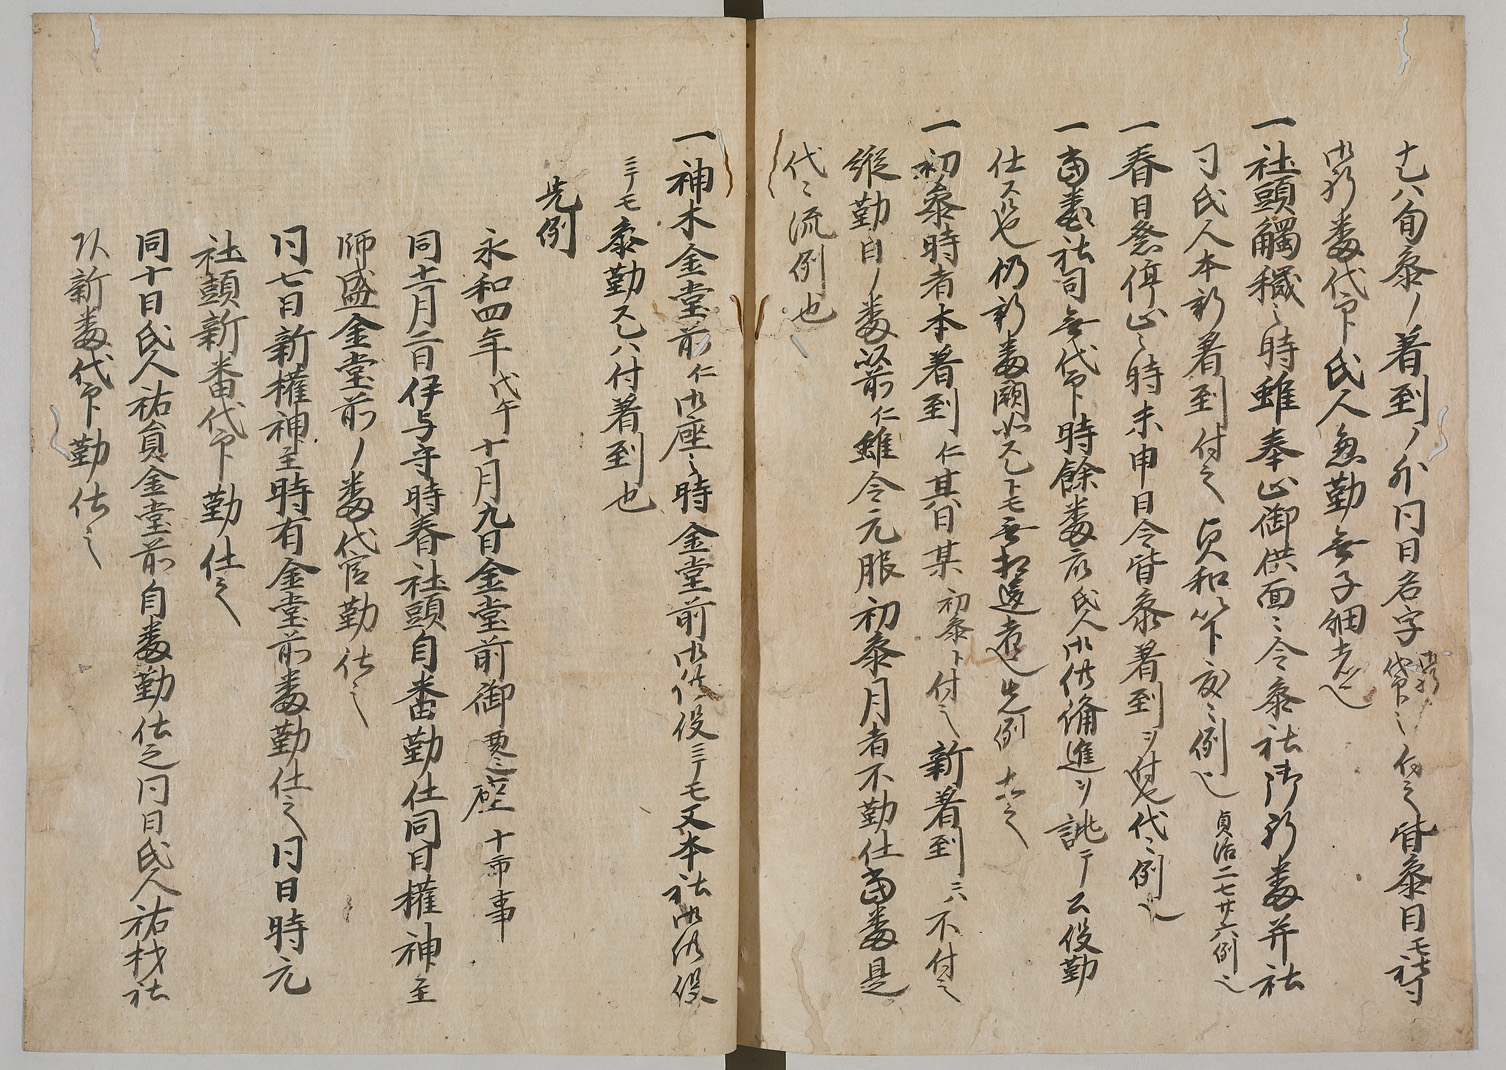 十八旬参ノ着到ノ外同日名字御新番代官卜付之皆参日モ社司
御新番代官卜氏人兼勤無子細者也
一社頭觸穢之時雖奉止御供面々令参社御新番并社
司氏人本新着到付之貞和以下度々例也貞治二七廿六例也
一春日祭停止之時未申日令皆参着到ヲ付也代々例也
一當番社司無代官時餘番或氏人御供備進ヲ誂テ公役勤
仕スル也仍新番闕如スルトモ無相違者也先例在之
一初参時者本着到仁其日某初参卜付之新着到ニハ不付之
縦勤自ノ番以前仁雖令元服初参月者不勤仕當番是
代々流例也
一神木金堂前仁御座之時金堂前御供役ニテモ又本社御供役
ニテモ参勤スルハ付着到也
先例
永和四年戊午十月九日金堂前御遷座十市事
同十一月二日伊与守時春社頭自番勤仕同日權神主
師盛金堂前ノ番代官勤仕之
同七日新權神主時有金堂前番勤仕之同日時元
社頭新番代官卜勤仕之
同十日氏人祐員金堂前自番勤仕之同日氏人祐材社
頭新番代官卜勤仕之